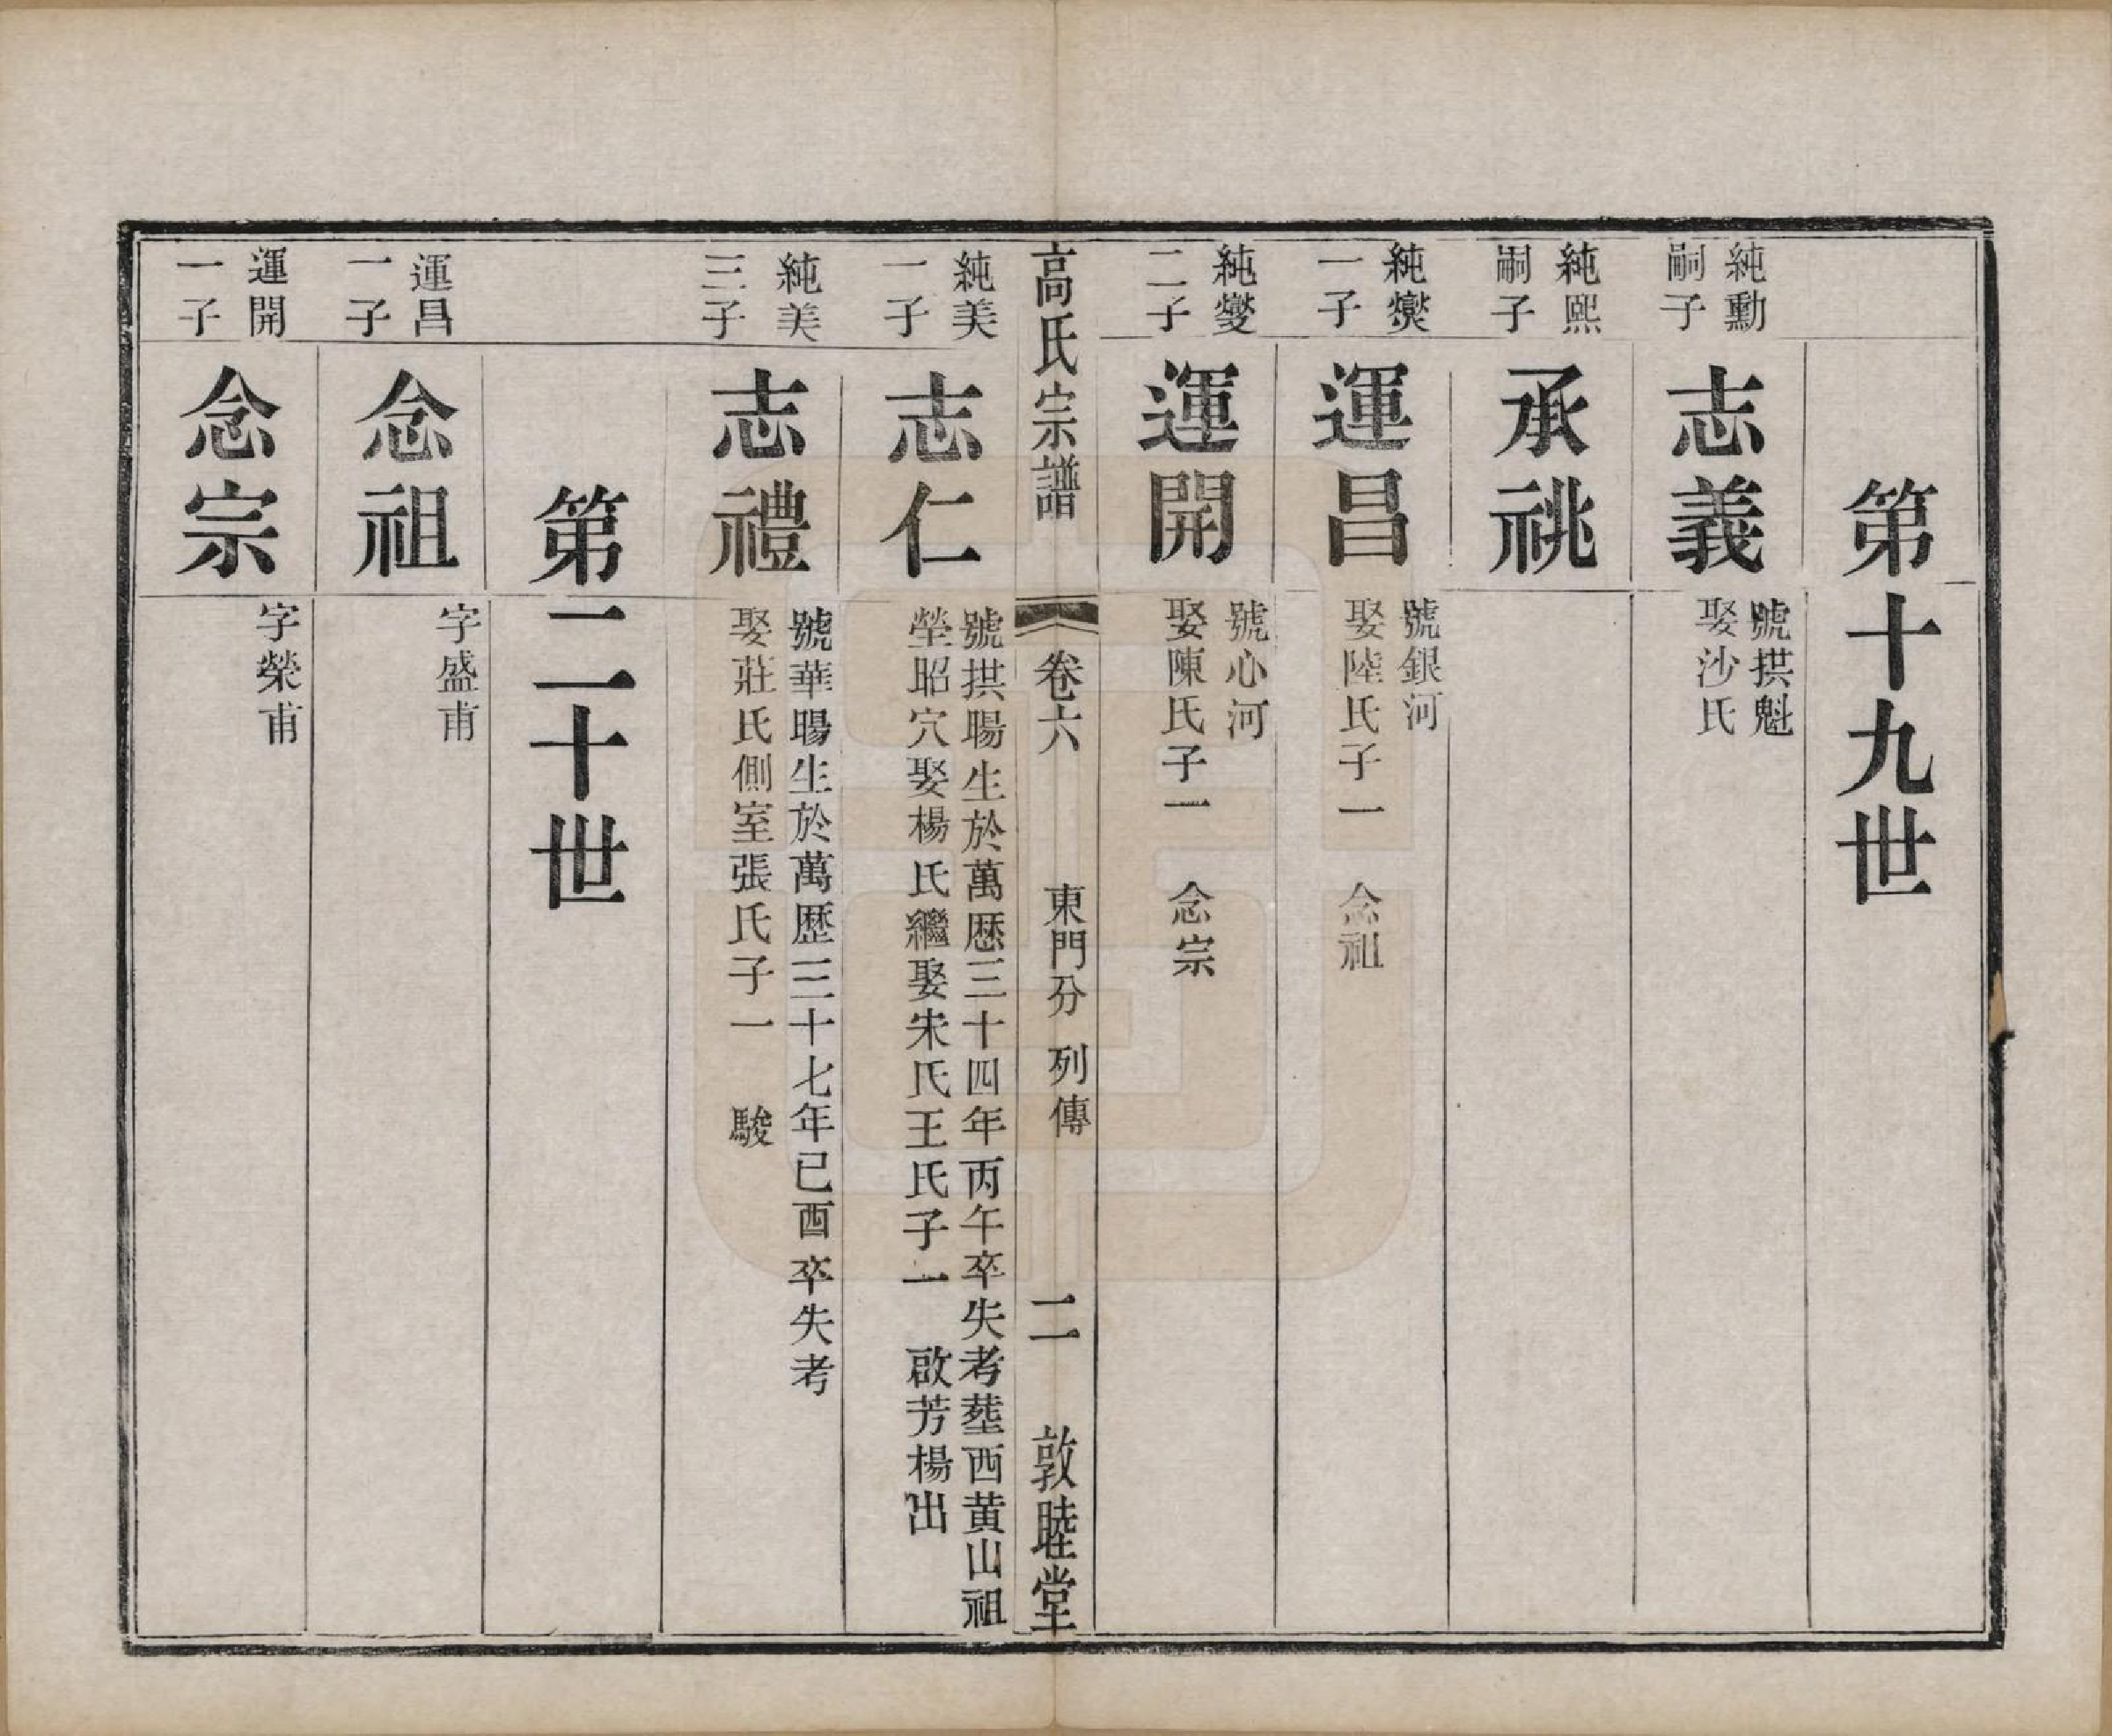 第十九世
純勳
嗣子
志義
號拱魁
娶沙氏
純熙
嗣子
承祧
純爕
一子
運昌
號銀河
娶陸氏子一　念祖
純燮
二子
運開
號心河
娶陳氏子一　念宗
高氏宗譜　卷六　東門分　列傳　二　敦睦堂
純美
一子
志仁
號拱暘生於萬歴三十四年丙午卒失考塟西黄山祖
塋昭穴娶楊氏繼娶朱氏王氏子一　啟芳楊出
純美
三子
志禮
號華暘生於萬歴三十七年已酉卒失考
娶莊氏側室張氏子一　駿
第二十世
運昌
一子
念祖
字盛甫
運開
一子
念宗
字榮甫